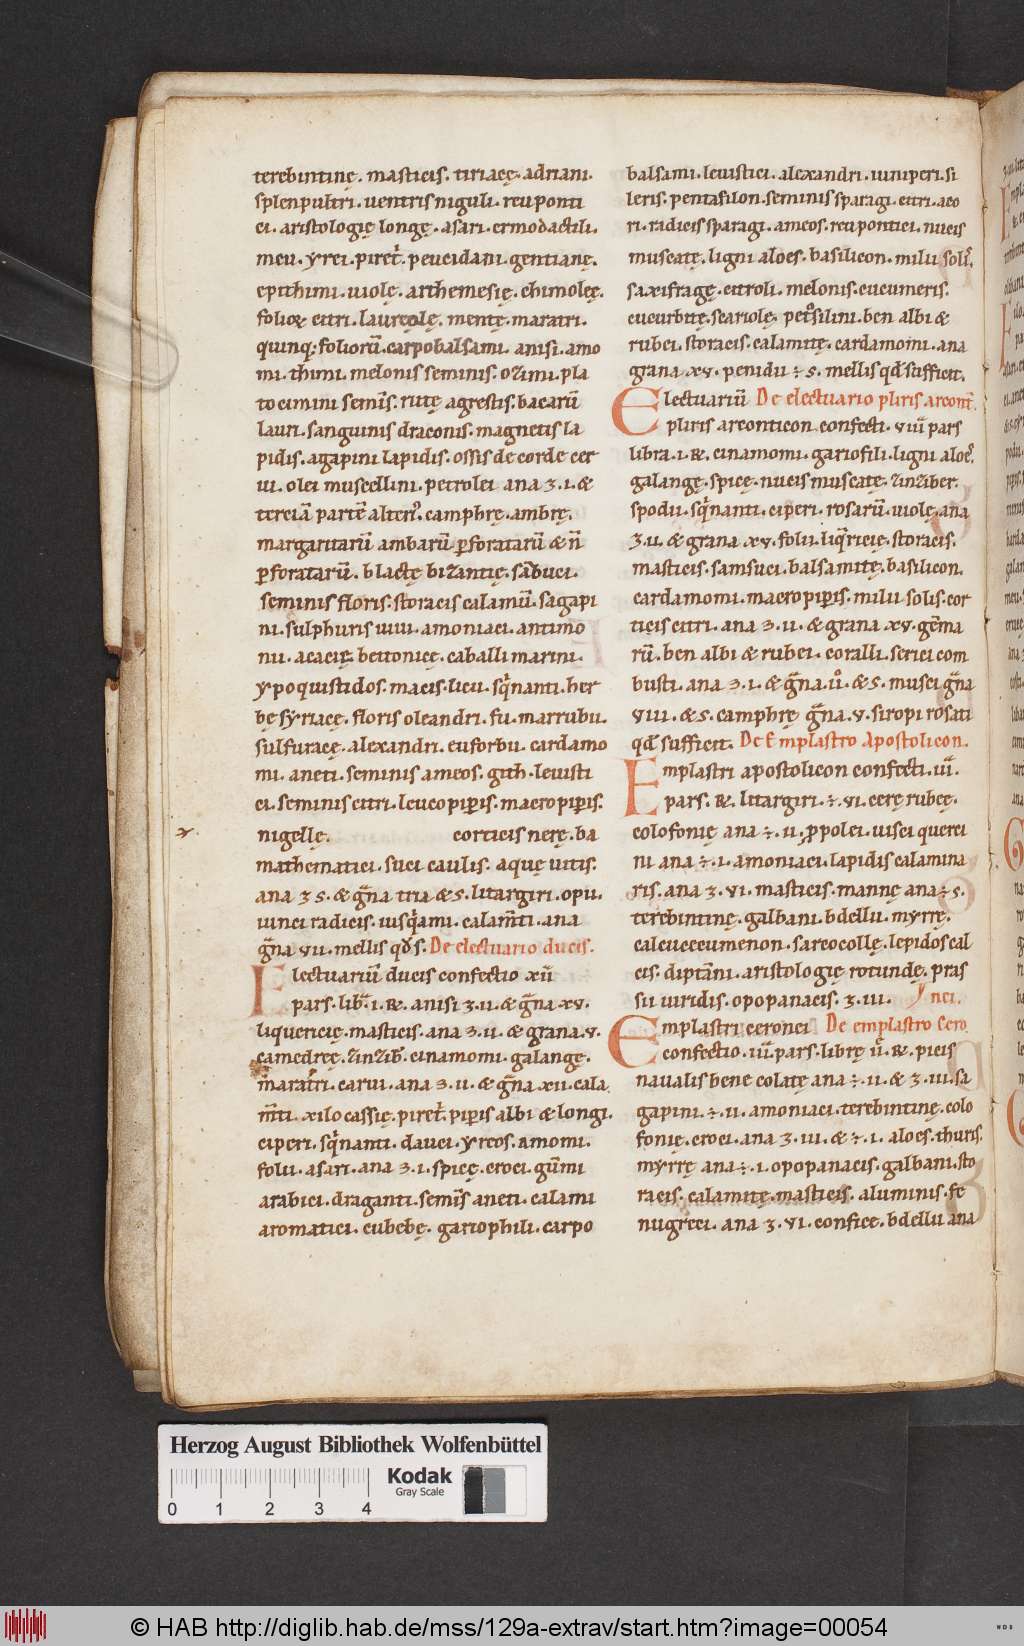 terebintinę. masticis. tiriacę. adriani.
splenpultri. uentris niguli. reuponti
ci. aristologię longę. asari. ermodactili.
meu. yrei. piret̄. peucidani. gentianę.
epithimi. uiolę. arthemesię. chimoleę.
folioꝝ citri. laureolę. mentę. maratri.
quinq; foliorū. carpobalsami. anisi. amo
mi. thimi. melonis seminis. ozimi. pla
to cimini semīs. rutę agrestis. bacarū
lauri. sanguinis draconis. magnetis la
pidis. agapini lapidis. ossis de corde cer
ui. olei muscellini. petrolei ana ʒ. i. &
terciā partē alteri'. camphrę. ambrę.
margaritarū ambarū ꝑforatarū & ñ
ꝑforatarū. blactę bizantię. sābuci.
seminis floris. storacis calamū. sagapi
ni. sulphuris uiui. amoniaci. antimo
nii. acacię. bettonicę. caballi marini.
ypoquistidos. macis. licii. sq̇nanti. her
bę syriacę. floris oleandri. fu. marrubii.
sulfuracę. alexandri. euforbii. cardamo
mi. aneti. seminis ameos. gith. leuisti
ci. seminis citri. leucopiꝑis. macropiꝑis.
nigellę. corticis nerę. ba
mathematici. suci caulis. aquę uitis.
ana ʒ s. & gña tria & s. litargiri. opii.
iunci radicis. iusq̇ami. calam̄ti. ana
gña vii. mellis qd̄ s. De electuario ducis.
Electuariū ducis confectio xii
pars. libr̄. i. ℞. anisi ʒ. ii. & gña xv.
liquericię. masticis. ana ʒ. ii. & grana. v.
camedreę. zinzib̄. cinamomi. galangę.
maratri. carui. ana ʒ. ii. & gña xii. cala
m̄ti. xilocassię. piret̄. piꝑis albi & longi.
ciperi. sq̇nanti. dauci. yreos. amomi.
folii. asari. ana ʒ. i. spicę. croci. gūmi
arabici. draganti. semīs aneti. calami
aromatici. cubebę. gariophili. carpo
balsami. leuistici. alexandri. iuniperi. si
leris. pentafilon. seminis sparagi. citri. aco
ri. radicis sparagi. ameos. reupontici. nucis
muscatę. ligni aloes. basilicon. milii solis.
saxifragę. citroli. melonis. cucumeris.
cucurbitę. scariolę. petrosilini. ben albi &
rubei. storacis. calamitę. cardamomi. ana
grana xv. penidii ÷ s. mellis qd̄ sufficit.
Electuariū De electuario pliris arcont̄.
pliris arconticon confecti. viii pars
libra. i. ℞. cinamomi. gariofili. ligni aloes.
galangę. spicę. nucis muscatę. zinziber.
spodii. sq̇nanti. ciperi. rosarū. uiolę. ana
ʒ. ii. & grana xv. folii. liq̇ricię. storacis.
masticis. samsuci. balsamitę. basilicon.
cardamomi. macropiꝑis. milii solis. cor
ticis citri. ana ʒ. ii. & grana xv. gēma
rū. ben albi & rubei. coralli. serici com
busti. ana ʒ. i. & gña. ii. & s. musci gña
viii. & s. camphrę gña. v. siropi rosati
qd̄ sufficit. De Emplastro Apostolicon.
Emplastri apostolicon confecti. iii.
pars. ℞. litargiri. ÷. vi. cerę rubeę.
colofonię ana ÷. ii. propolei. uisci querci
ni ana ÷. i. amoniaci. lapidis calamina
ris. ana ʒ. vi. masticis. mannę ana ÷ s.
terebintinę. galbani. bdellii. myrrę.
calcucecumenon. sarcocollę. lepidos cal
cis. diptāni. aristologię rotundę. pras
sii uiridis. opopanacis. ʒ. iii. ynci.
Emplastri ceronei De emplastro Cero
confectio. iii pars. librę ii. ℞. picis
naualis bene colatę ana ÷. ii. & ʒ. iii. sa
gapini. ÷. ii. amoniaci. terebintinę. colo
fonię. croci. ana ʒ. iii. & ÷. i. aloes. thuris.
myrrę ana ÷. i. opopanacis. galbani. sto
racis. calamitę. masticis. aluminis. fe
nugreci. ana ʒ. vi. confice. bdellii ana
Herzog August Bibliothek Wolfenbüttel
0 1 2 3 4
Kodak
Gray Scale
© HAB http://diglib.hab.de/mss/129a-extrav/start.htm?image=00054